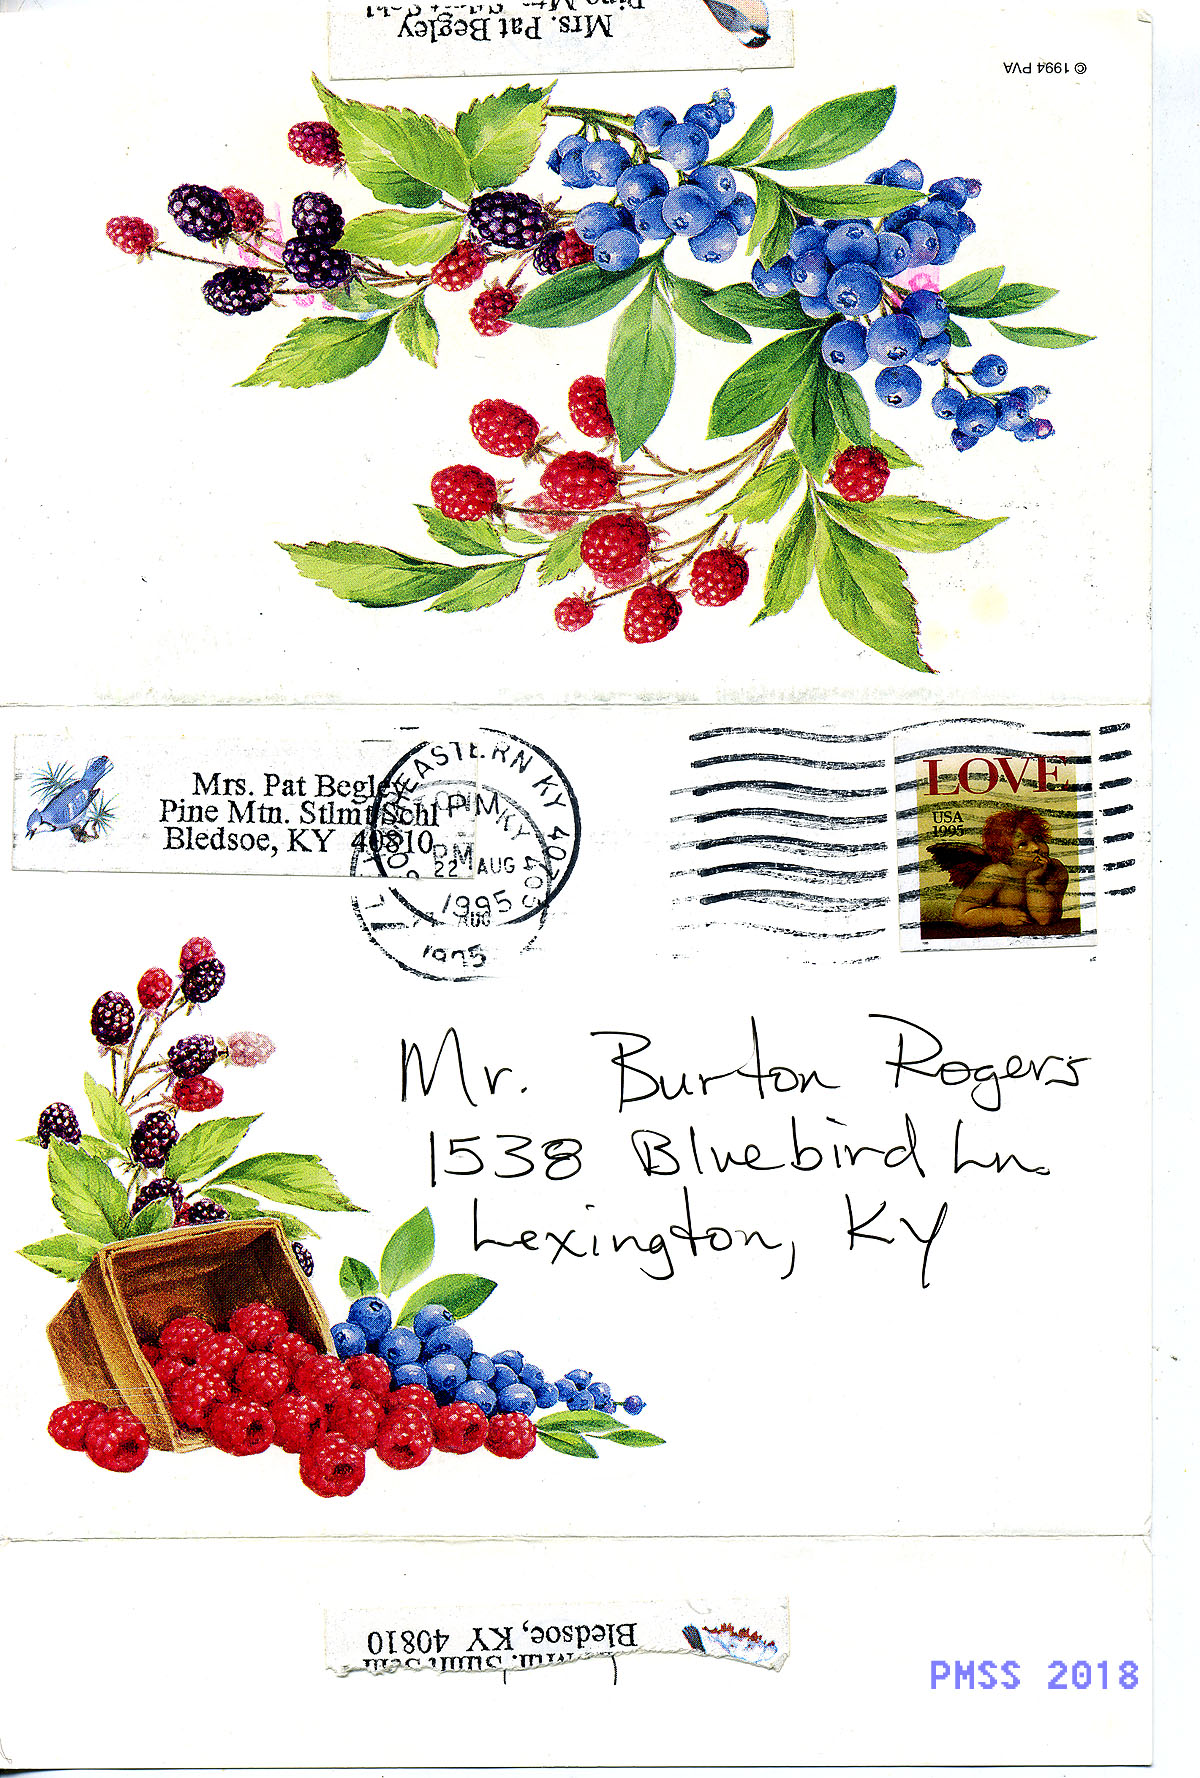 Mrs. Pat Begley
© 1994 PVA
Mrs. Pat Begley
Pine Mtn. Stlmt Schl
Bledsoe, KY 40810
EASTERN KY 40
PM
22 AUG
1995
KY 403
PM
AUG
1995
LOVE
USA
1995
Mr. Burton Rogers
1538 Bluebird Ln.
Lexington, KY
Bledsoe, KY 40810
PMSS 2018